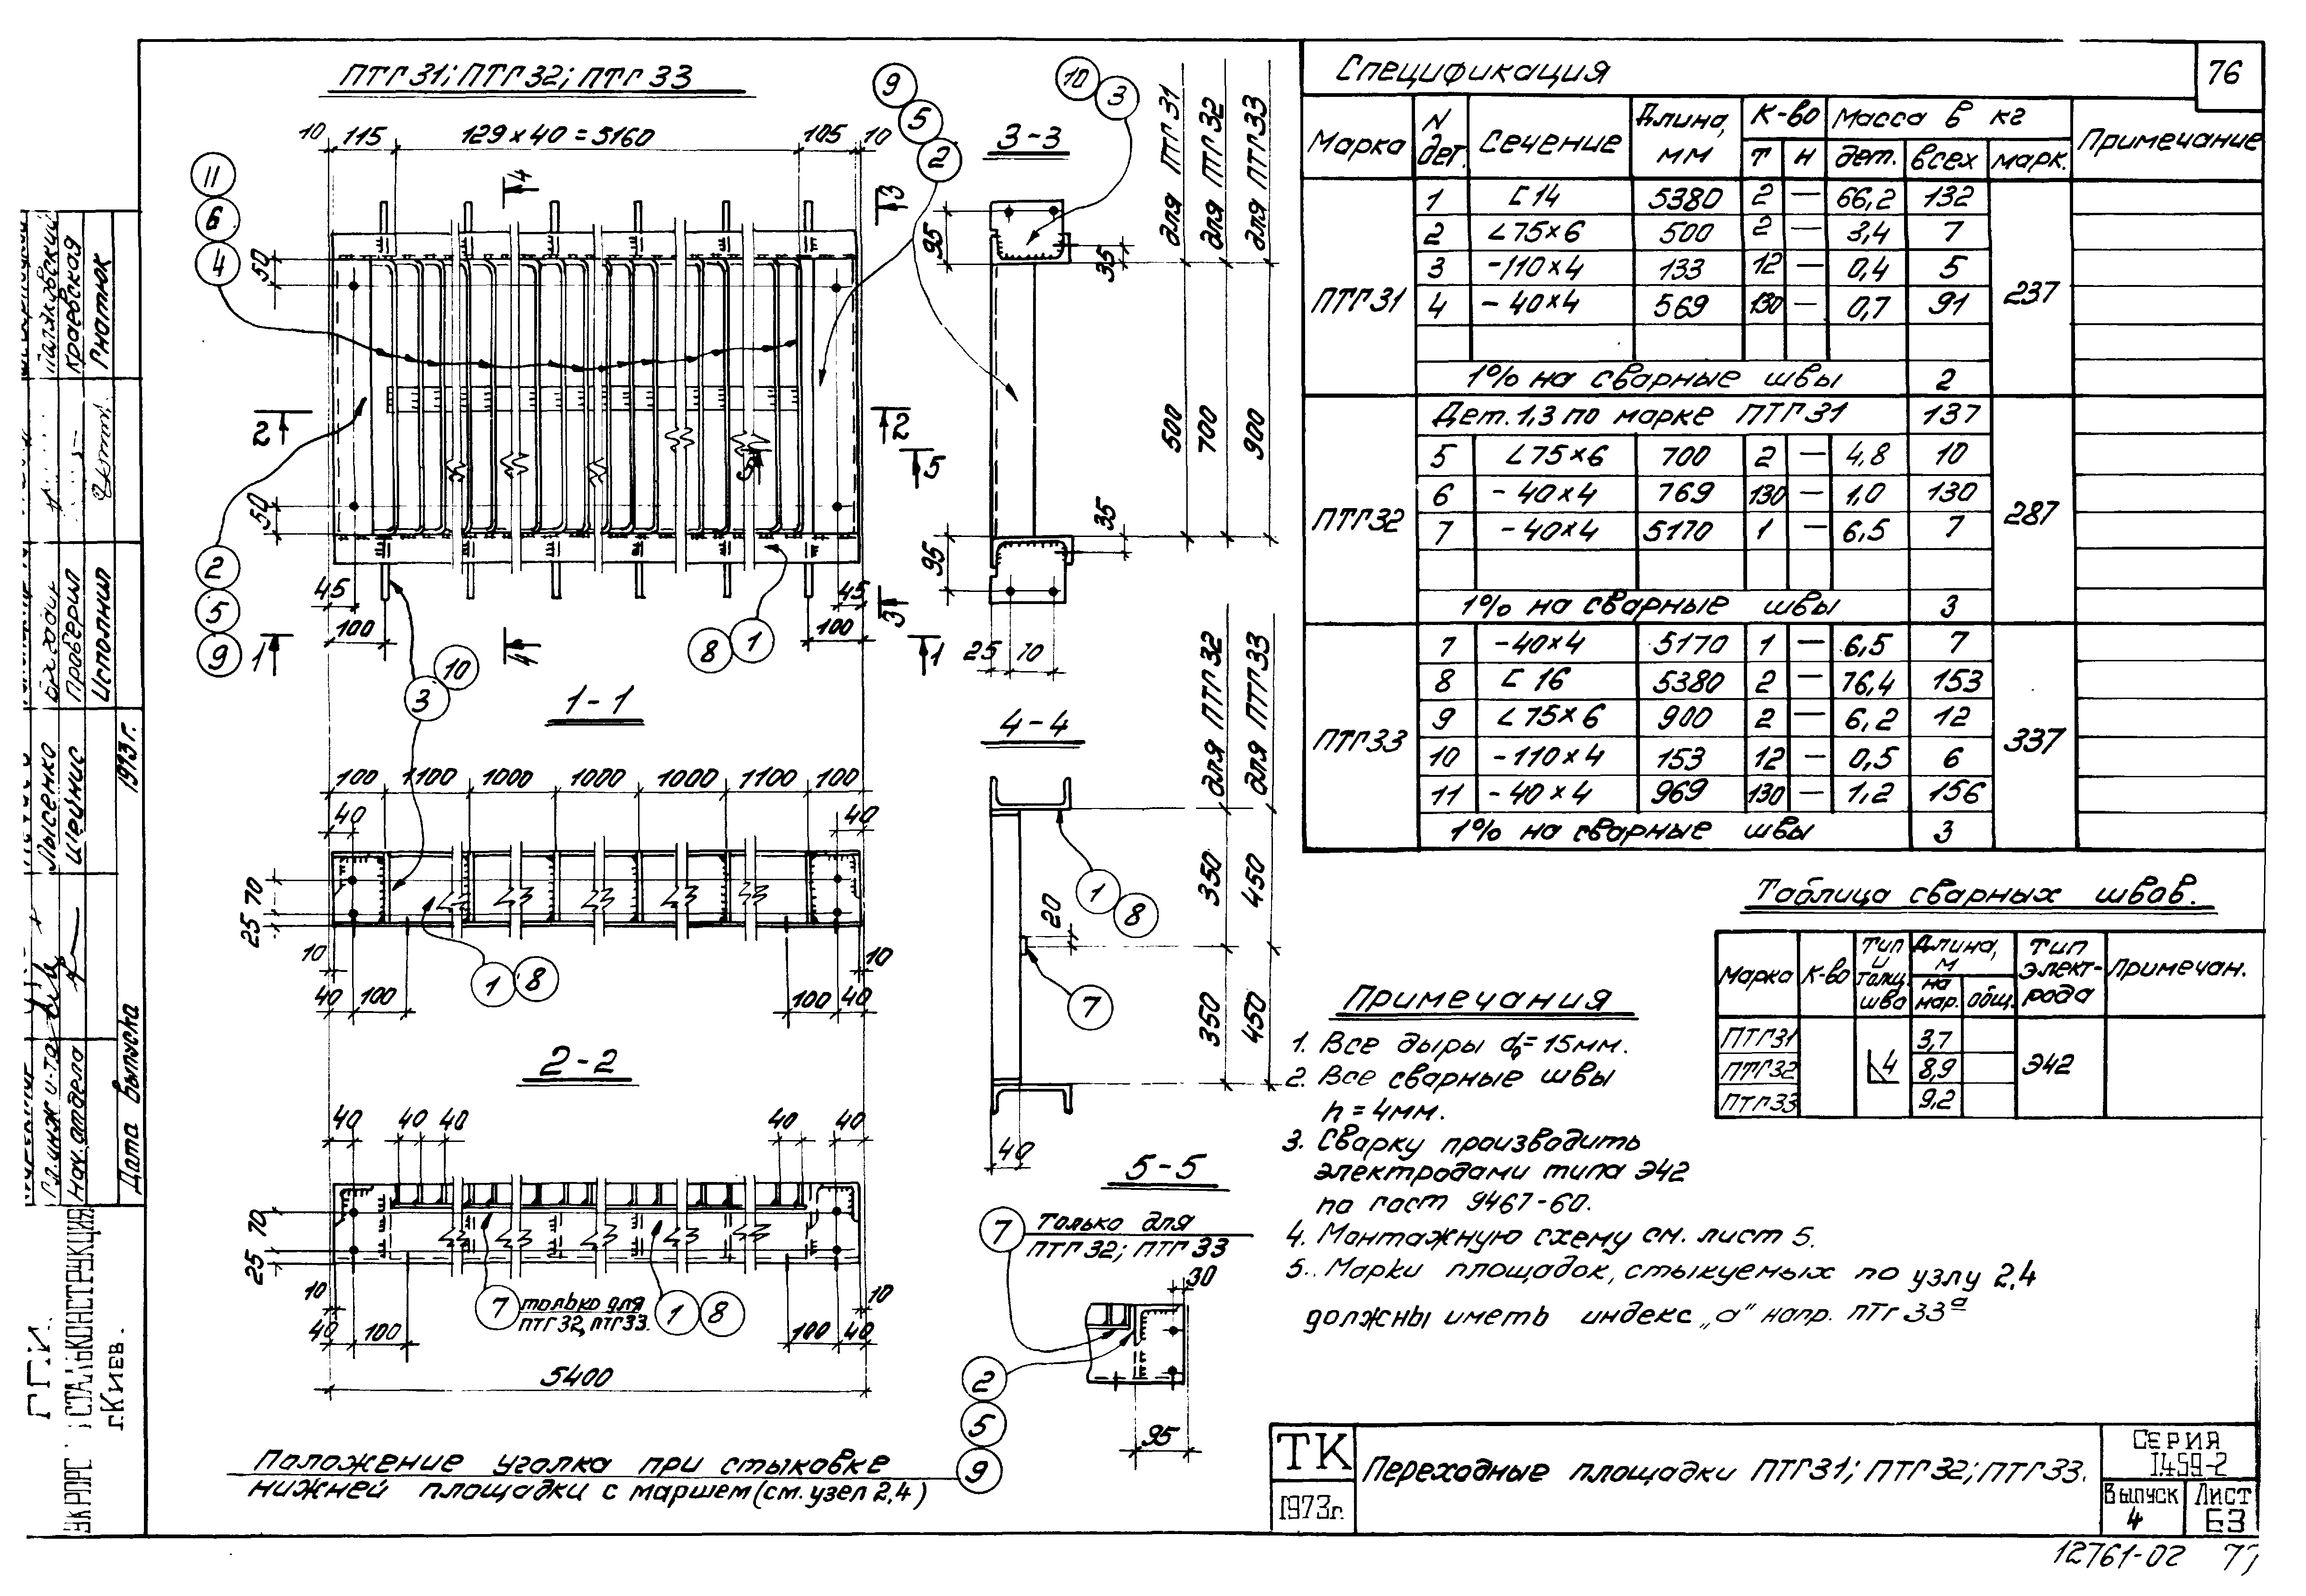 ПТГ31; ПТГ32; ПТГ33
10 115 129 x 40 = 5160 105 10
11
6
4
9
5
2
4 3
50
95
2 2
5 5
50
45 45
100 100
2
5
9
1 4 3 1
3 10
8 1
3-3
10 3
95
35
35
95
25 70
для ПТГ31
для ПТГ32
для ПТГ33
500
700
900
1-1
100 1100 1000 1000 1000 1100 100
40 40
70
25
10 10
40 100 100 40
1 8
2-2
40 40 40 40 40
70
25
10 10
40 100 100 40
7 только для
ПТГ32, ПТГ33.
1 8
5400
4-4
для ПТГ32
для ПТГ33
350 450
20
1 8
7
350 450
40
5-5
7 только для
ПТГ32; ПТГ33
30
2
5
9
95
Положение уголка при стыковке
нижней площадки с маршем (см. узел 2,4)
Спецификация
76
Марка N дет. Сечение Длина, мм К-во Масса в кг Примечание
т н дет. всех марк.
ПТГ31 237
1 [ 14 5380 2 — 66,2 132
2 ∠75×6 500 2 — 3,4 7
3 -110×4 133 12 — 0,4 5
4 - 40×4 569 130 — 0,7 91
1% на сварные швы 2
ПТГ32 287
Дет. 1,3 по марке ПТГ31 137
5 ∠75×6 700 2 — 4,8 10
6 - 40×4 769 130 — 1,0 130
7 -40×4 5170 1 — 6,5 7
1% на сварные швы 3
ПТГ33 337
7 -40×4 5170 1 — 6,5 7
8 [ 16 5380 2 — 76,4 153
9 ∠75×6 900 2 — 6,2 12
10 -110×4 153 12 — 0,5 6
11 - 40×4 969 130 — 1,2 156
1% на сварные швы 3
Таблица сварных швов.
Марка К-во Тип и толщ. шва Длина, м Тип элект-рода Примечан.
на мар. общ.
ПТГ31 3,7
ПТГ32 4 8,9 Э42
ПТГ33 9,2
Примечания
1. Все дыры d₀=15мм.
2. Все сварные швы
h = 4мм.
3. Сварку производить
электродами типа Э42
по гост 9467-60.
4. Монтажную схему см. лист 5.
5. Марки площадок, стыкуемых по узлу 2,4
должны иметь индекс „а" напр. ПТГ 33ᵃ
ТК
1973г.
Переходные площадки ПТГ31; ПТГ32; ПТГ33.
Серия
1.459-2
Выпуск
4
Лист
63
12761-02 77
Кравская
Гнатюк
Проверил
Исполнил
Лысенко
Шецнис
1973г.
Нач. отдела
Дата выпуска
СТАЛЬКОНСТРУКЦИЯ
г.Киев.